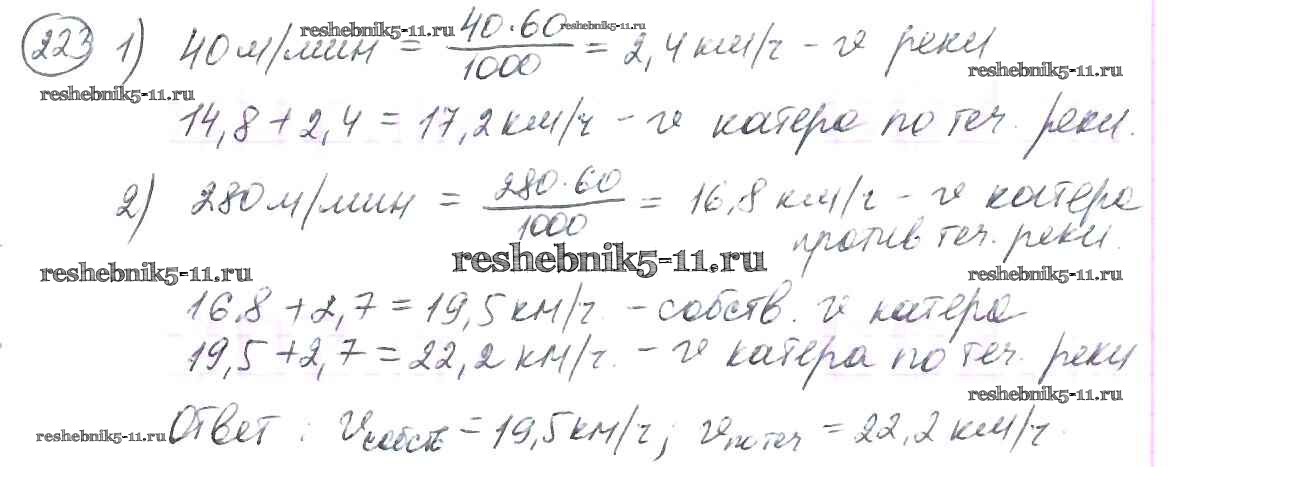 223 1) 40 м/мин = 40·60/1000 = 2,4 км/ч - v реки
14,8 + 2,4 = 17,2 км/ч - v катера по теч. реки.
2) 280 м/мин = 280·60/1000 = 16,8 км/ч - v катера
против теч. реки.
16,8 + 2,7 = 19,5 км/ч. - собств. v катера
19,5 + 2,7 = 22,2 км/ч. - v катера по теч. реки
Ответ: v собств = 19,5 км/ч; v по теч = 22,2 км/ч.
reshebnik5-11.ru
reshebnik5-11.ru
reshebnik5-11.ru
reshebnik5-11.ru
reshebnik5-11.ru
reshebnik5-11.ru
reshebnik5-11.ru
reshebnik5-11.ru
reshebnik5-11.ru